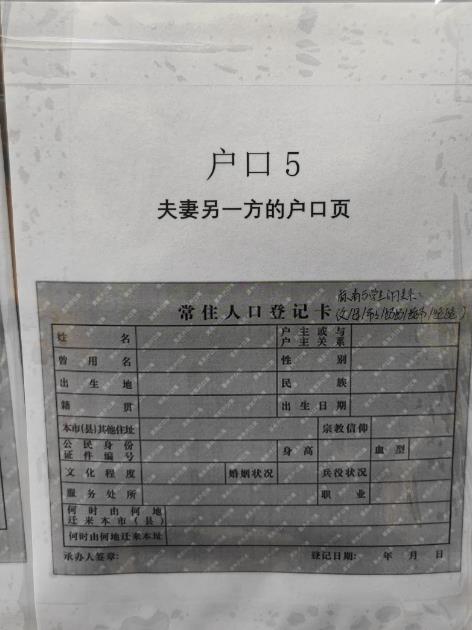 户口5
夫妻另一方的户口页
常住人口登记卡
姓名 户主或与户主关系
曾用名 性别
出生地 民族
籍贯 出生日期
本市(县)其他住址 宗教信仰
公民身份证件编号 身高 血型
文化程度 婚姻状况 兵役状况
服务处所 职业
何时由何地迁来本市(县)
何时由何地迁来本址
承办人签章: 登记日期: 年 月 日